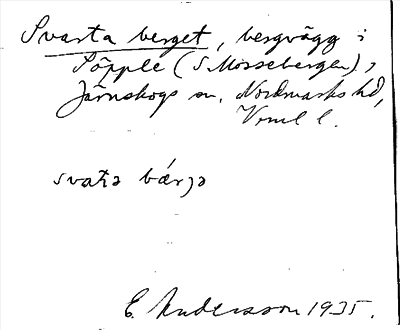 Svarta berget, bergvägg i
Töpple (S. Mosseberget),
Järnskogs sn, Nordmarks hd,
Vrml l.
svat̄a bærjə
E. Andersson 1935.